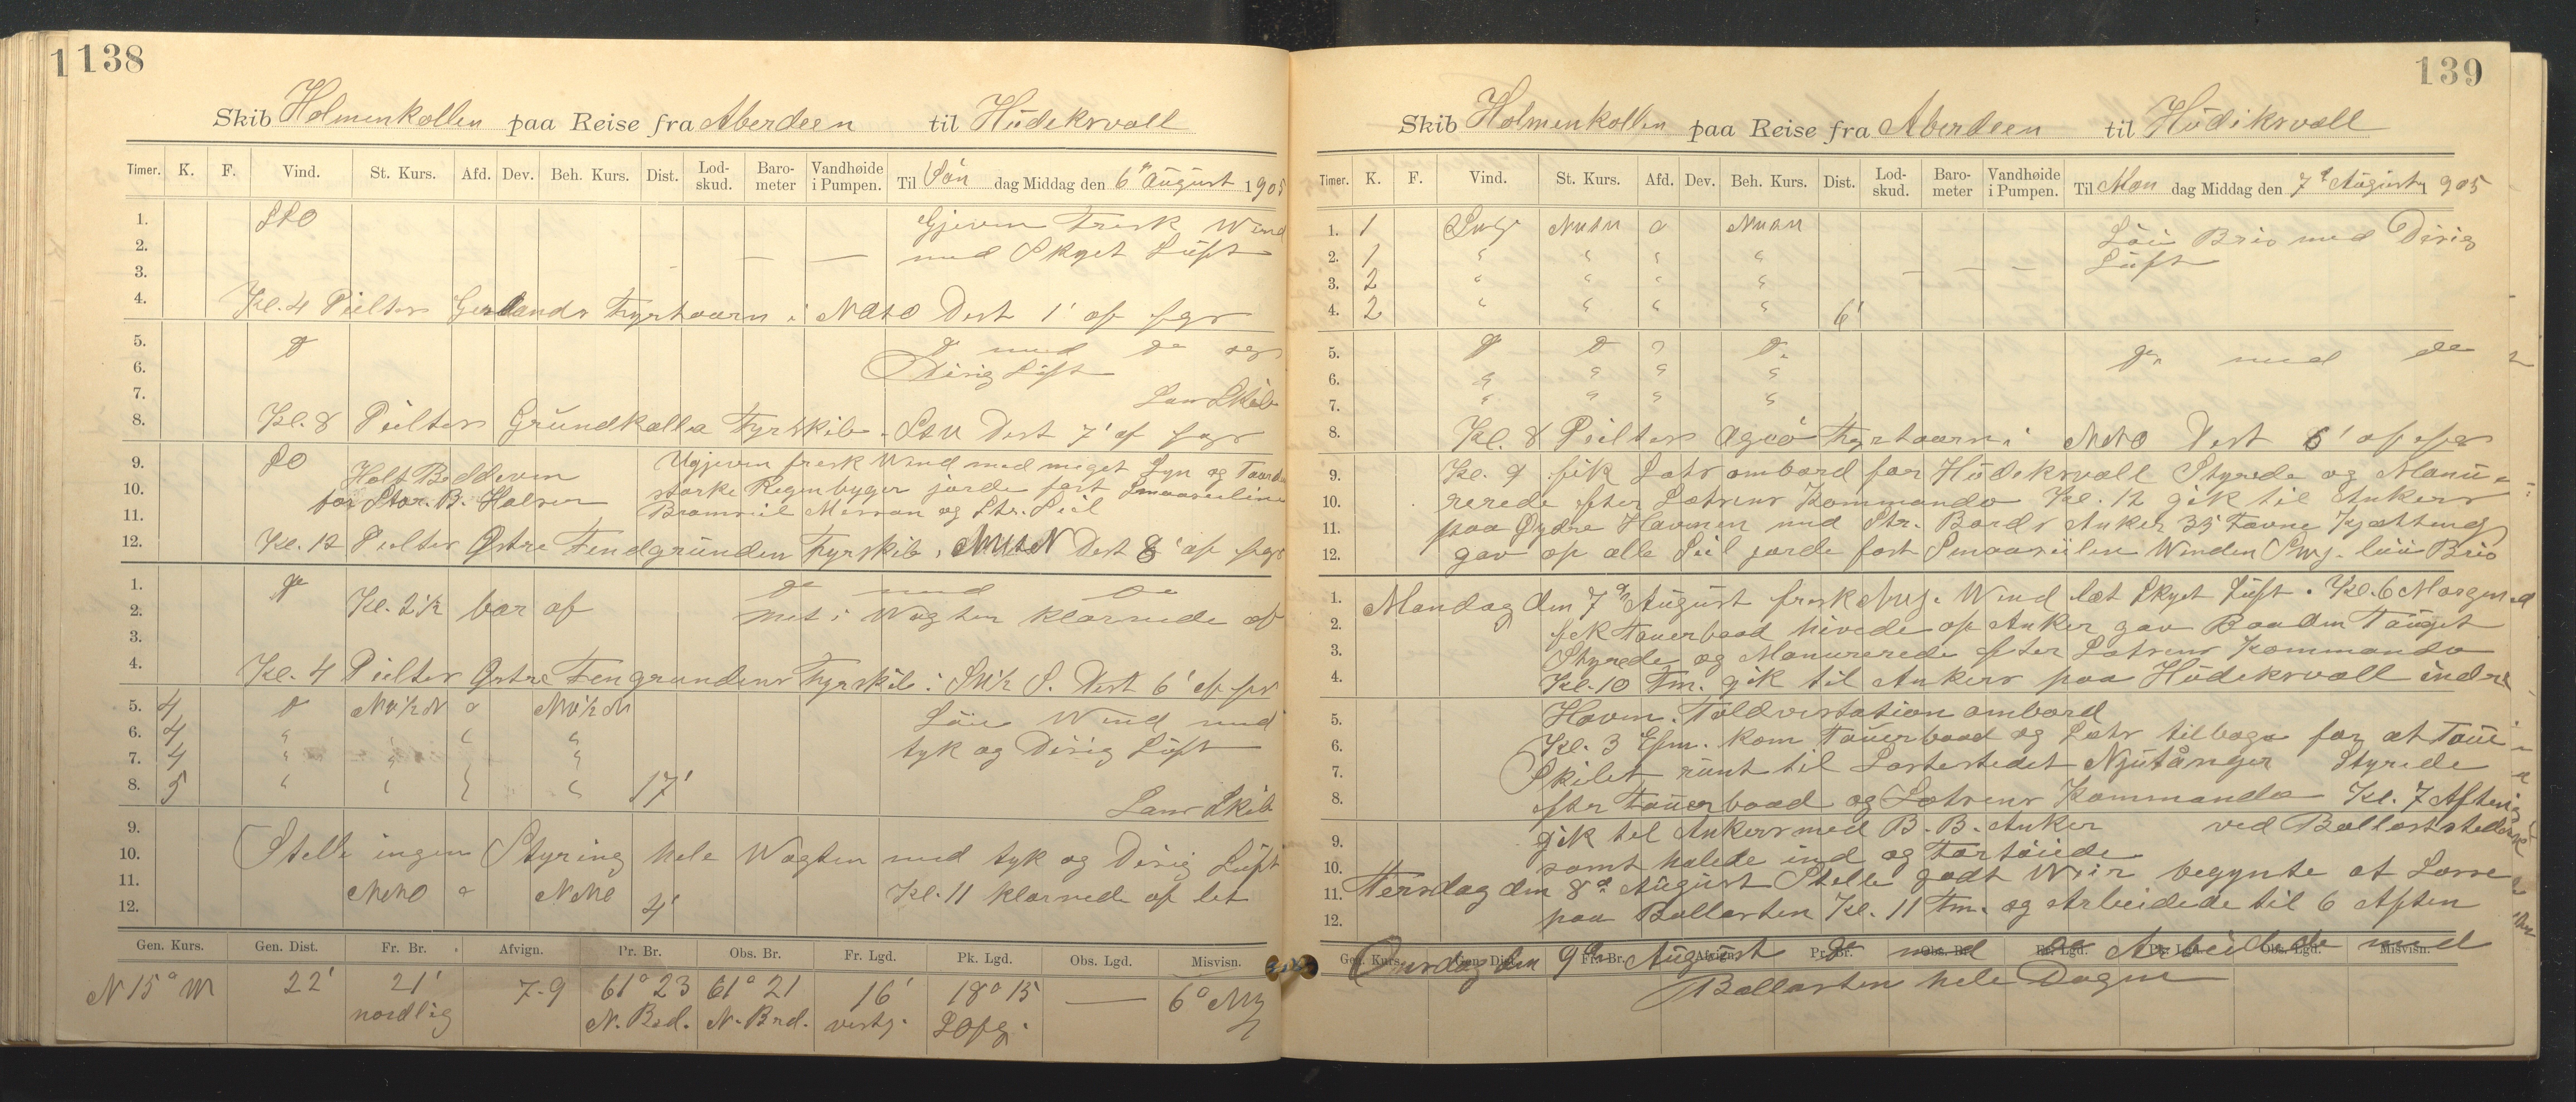 1138
Skib Holmenkollen paa Reise fra Aberdeen til Hüdiksvall
Timer. K. F. Vind. St. Kurs. Afd. Dev. Beh. Kurs. Dist. Lod-skud. Baro-meter Vandhøide i Pumpen. Til Søn dag Middag den 6te August 1905
1. SSO Gjevn Frisk Wind
2. — — med Skyet Lüft
3.
4. Kl. 4 Peiltes Fyrtaarn i Dist 1' af fyr
5. do do med do og
6. Disig Lüft
7. Lans Skib
8. Kl. 8 Peiltes Gründkalla Fyrskib Dist 7' af fyr
9. SO Holt Bedeven Ugjevn frisk Wind med meget Lyn og Torden
10. for Stor. B. Halser starke Regenbyger jorde fast Smaaseilene
11. Bramseil Mersan og Str. Seil
12. Kl. 12 Peiltes Østre Fendgründen Fyrskib i Dist 8' af fyr
1. do do med do
2. Kl. 2½ bar af Met i Wagten klarnede af
3.
4. Kl. 4 Peiltes Østre Fengrundens Fyrskib i S. Dist 6' af fyr
5. 4 do NV½N o NV½N Løi Wind med
6. 4 " " " " tyk og Disig Lüft
7. 4 " " "
8. 5 " " " " 17' Lans Skib
9.
10. Stelle ingen Styring hele Wagten med tyk og Disig Lüft
11. NNO o NNO Kl. 11 klarnede af let
12. 4'
Gen. Kurs. Gen. Dist. Fr. Br. Afvign. Pr. Br. Obs. Br. Fr. Lgd. Pk. Lgd. Obs. Lgd. Misvisn.
N 15° W 22' 21' 7-9 61° 23 61° 21 16' 18° 15 — 6°
nordlig N. Brd. N. Brd. vestg. Ø Lg.
139
Skib Holmenkollen paa Reise fra Aberdeen til Hüdiksvall
Timer. K. F. Vind. St. Kurs. Afd. Dev. Beh. Kurs. Dist. Lod-skud. Baro-meter Vandhøide i Pumpen. Til Man dag Middag den 7de August 1905
1. 1 o Løi Bris med Disig
2. 1 " " " " Lüft
3. 2 " " " " — — —
4. 2 " " " " 6'
5. do do do do med do
6. " " " "
7. " " " "
8. Kl. 8 Peiltes Agüö Fyrtaarn i NNO Dist 6' af fyr
9. Kl. 9 fik Lots ombord for Hüdiksvall Styrede og Manü-
10. rerede efter Lotsens Kommando Kl. 12 gik til Ankers
11. paa Ÿydre Havnen med Str. Bords Anker 35 Favne Kjætting
12. gav op alle Seil jorde fast Smaaseilen Winden løi Bris
1. Mandag den 7de August frisk Wind let Skyet Lüft. Kl. 6 Morgen
2. fik Tauerbaad hivede op Anker gav Baaden Tauget
3. Styrede og Manurerede efter Lotsens Kommando
4. Kl. 10 Fm. gik til Ankers paa Hüdiksvall indre
5. Havn. Toldvisitasion ombord
6. Kl. 3 Efm. kom Tauerbaad og Lots tilbage for at Taue
7. Skibet runt til Lastestedet Njutånger Styrede
8. efter Tauerbaad og Lotsens Kommando Kl. 7 Aften
9. gik til Ankers med B. B. Anker ved Ballaststellet
10. samt halede ind og Fortøiede
11. Tersdag den 8de August Stelle godt Weir begynte at Losse
12. paa Ballasten Kl. 11 Fm. og Arbeidede til 6 Aften
Gen. Kurs. Gen. Dist. Fr. Br. Afvign. Pr. Br. Obs. Br. Fr. Lgd. Pk. Lgd. Obs. Lgd. Misvisn.
Onsdag den 9de August do med do Arbeidede med
Ballasten hele Dagen